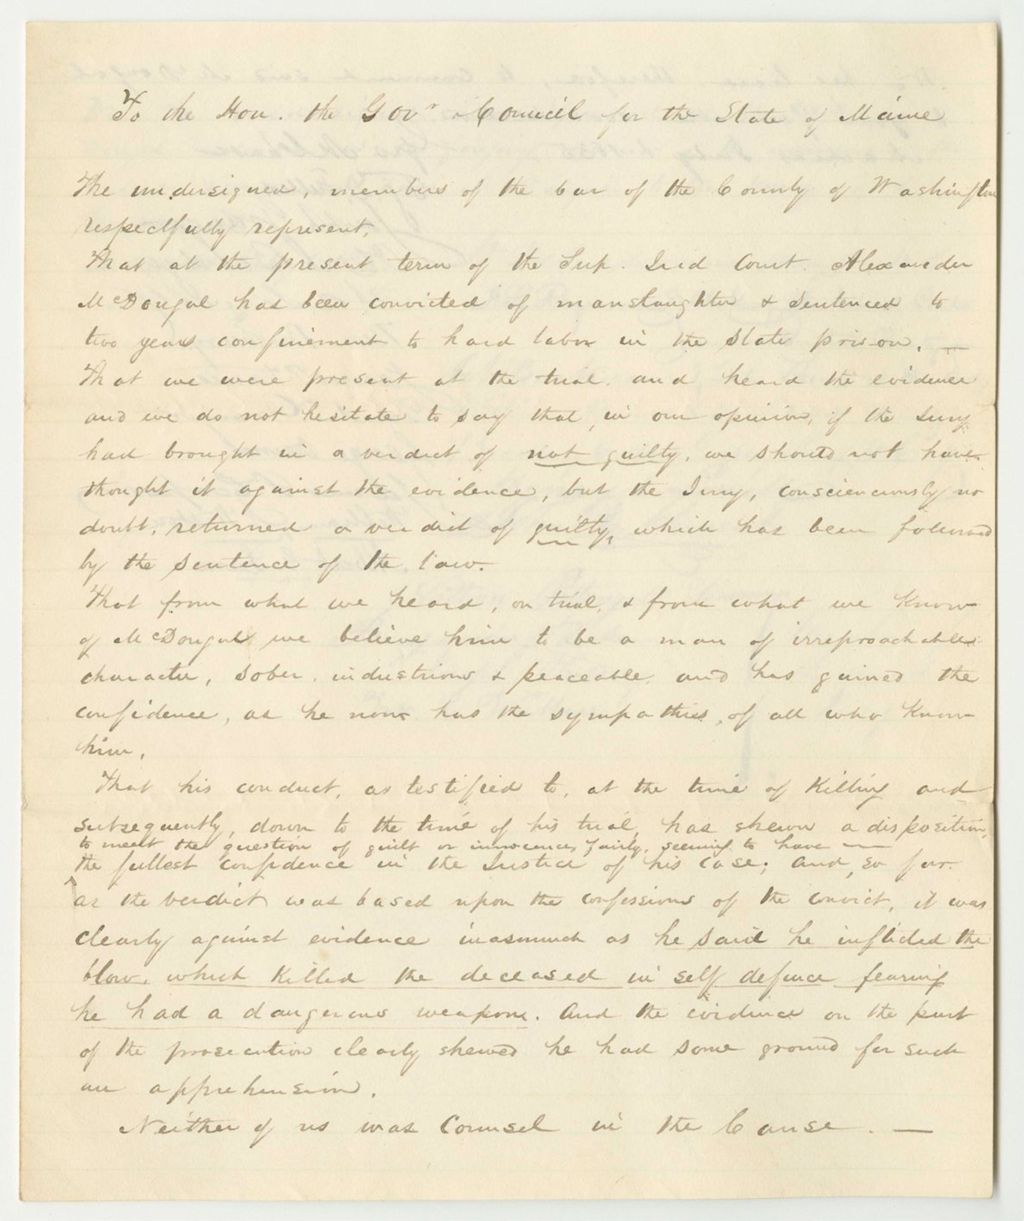 To the Hon. the Govr & Council for the State of Maine
The undersigned, members of the bar of the County of Washington
respectfully represent,
That at the present term of the Sup. Jud Court. Alexander
McDougal has been convicted of manslaughter & sentenced to
two years confinement to hard labor in the State prison. —
That we were present at the trial, and heard the evidence
and we do not hesitate to say that, in our opinion, if the Jury
had brought in a verdict of not guilty, we should not have
thought it against the evidence, but the Jury, consciensciously no
doubt, returned a verdict of guilty, which has been followed
by the sentence of the law.
That from what we heard, on trial, & from what we know
of McDougal, we believe him to be a man of irreproachable
character, sober, industrious & peaceable, and has gained the
confidence, as he now has the sympathies, of all who know
him.
That his conduct, as testified to, at the time of killing and
subsequently, down to the time of his trial, has shewn a disposition,
to meet the question of guilt or innocence, fairly, seeming to have —
the fullest confidence in the Justice of his case; and, so far
as the verdict was based upon the confessions of the convict, it was
clearly against evidence inasmuch as he said he inflicted the
blow, which killed the deceased in self defence, fearing
he had a dangerous weapon. And the evidence on the part
of the prosecution clearly shewed he had some ground for such
an apprehension.
Neither of us was Counsel in the Cause. —